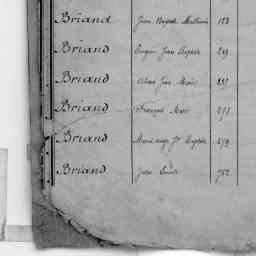 Briand Jean Baptiste Mathurin 123
Briand Jean Baptiste 219
Briand Jean Marie
Briand François Marie 271
Briand Marie ange Jn Baptiste
Briand Jean Louis 752